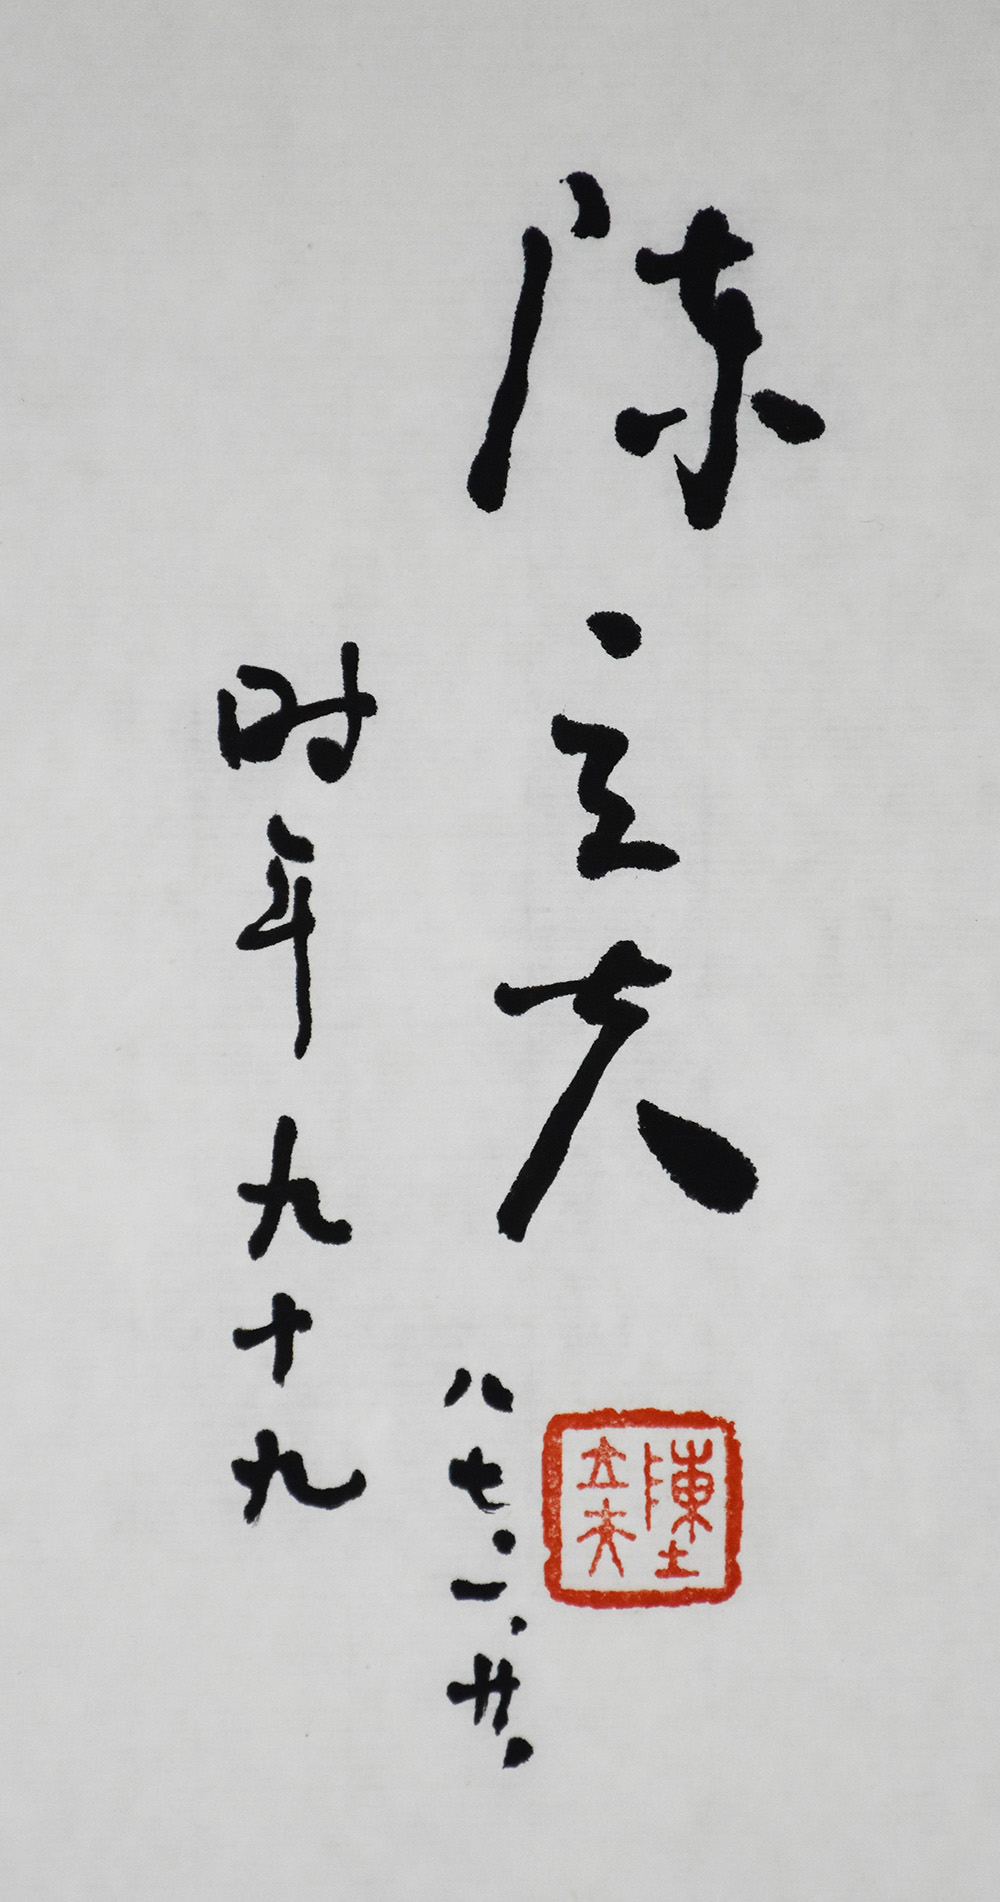 陈立夫
八七.一.廿.
时年九十九
陳立夫